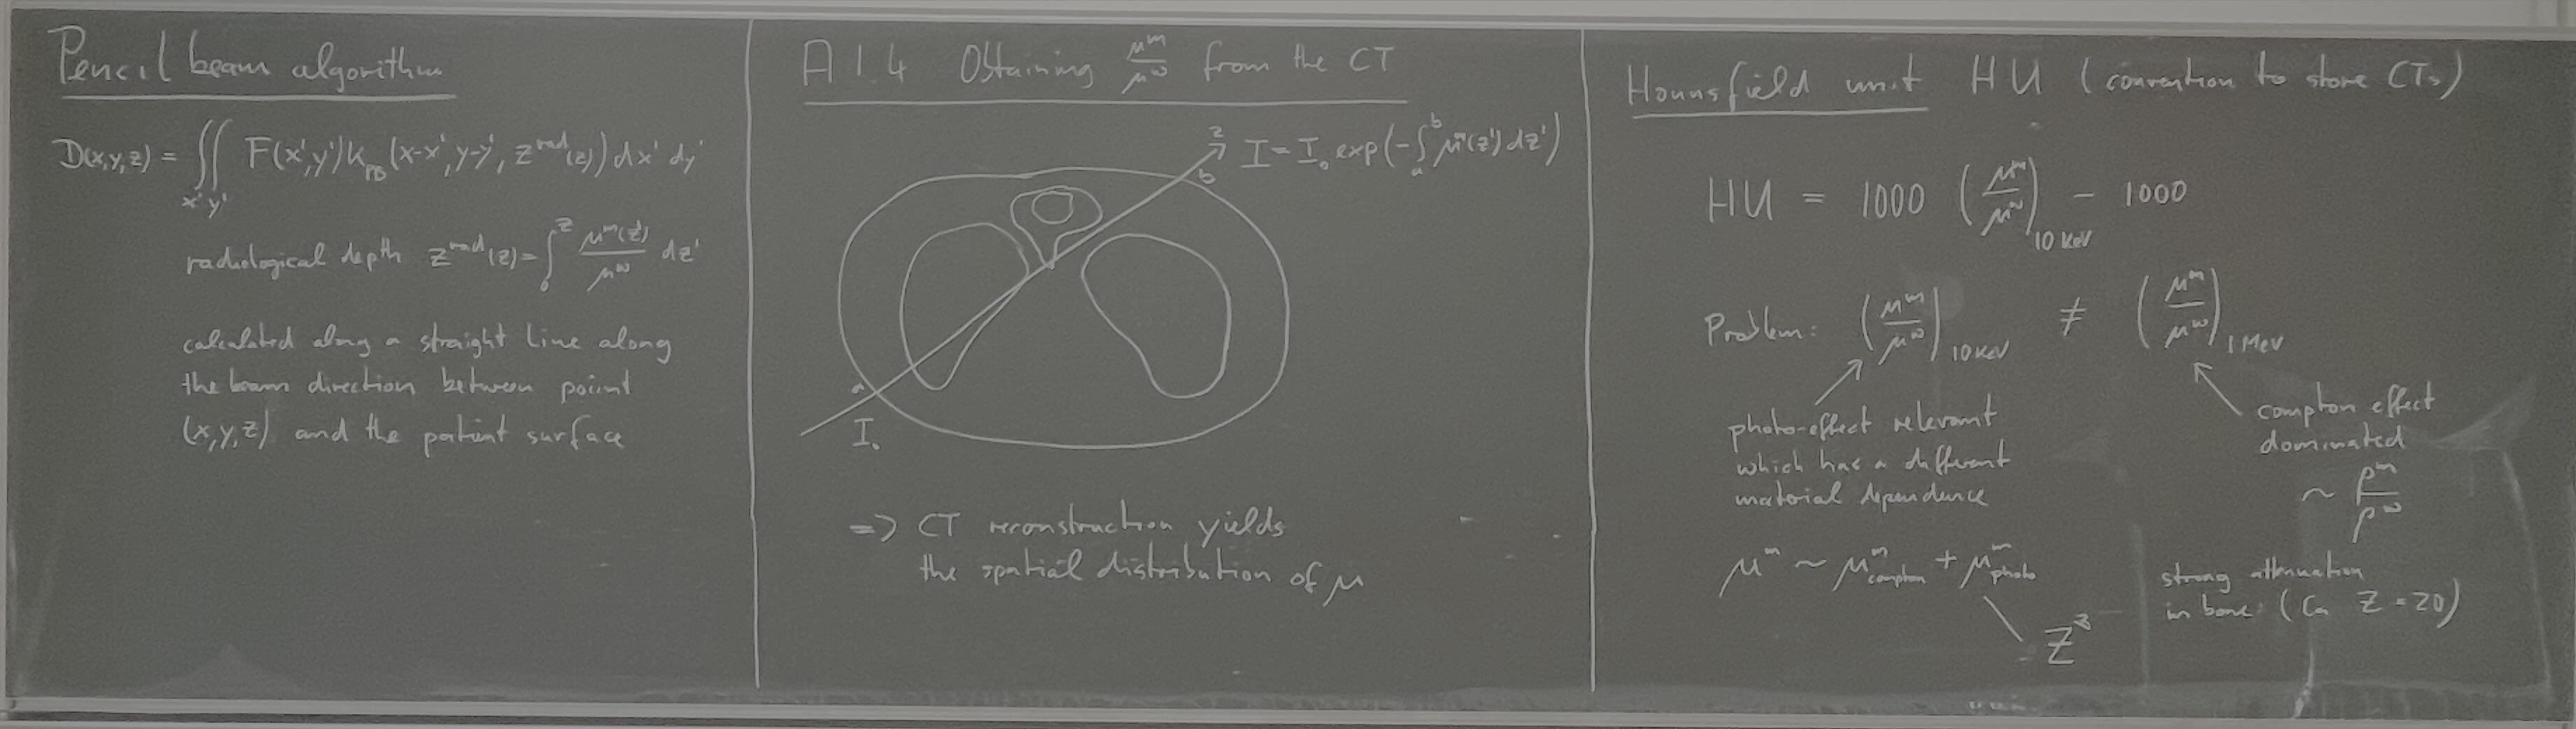 Pencil beam algorithm
D(x,y,z) = ∬ F(x',y') k_PB (x-x', y-y', z^rad(z)) dx' dy'
x' y'
radiological depth z^rad(z) = ∫_0^z μ^m(z')/μ^w dz'
calculated along a straight line along
the beam direction between point
(x,y,z) and the patient surface
A 1.4 Obtaining μ^m/μ^w from the CT
z
I = I_0 exp(-∫_a^b μ^m(z') dz')
b
a
I_0
=> CT reconstruction yields
the spatial distribution of μ
Hounsfield unit HU (convention to store CTs)
HU = 1000 (μ^m/μ^w)_10 keV - 1000
Problem: (μ^m/μ^w)_10 keV ≠ (μ^m/μ^w)_1 MeV
photo-effect relevant
which has a different
material dependence
compton effect
dominated
~ ρ^m/ρ^w
μ^m ~ μ^m_compton + μ^m_photo
Z^3
strong attenuation
in bone: (Ca Z=20)